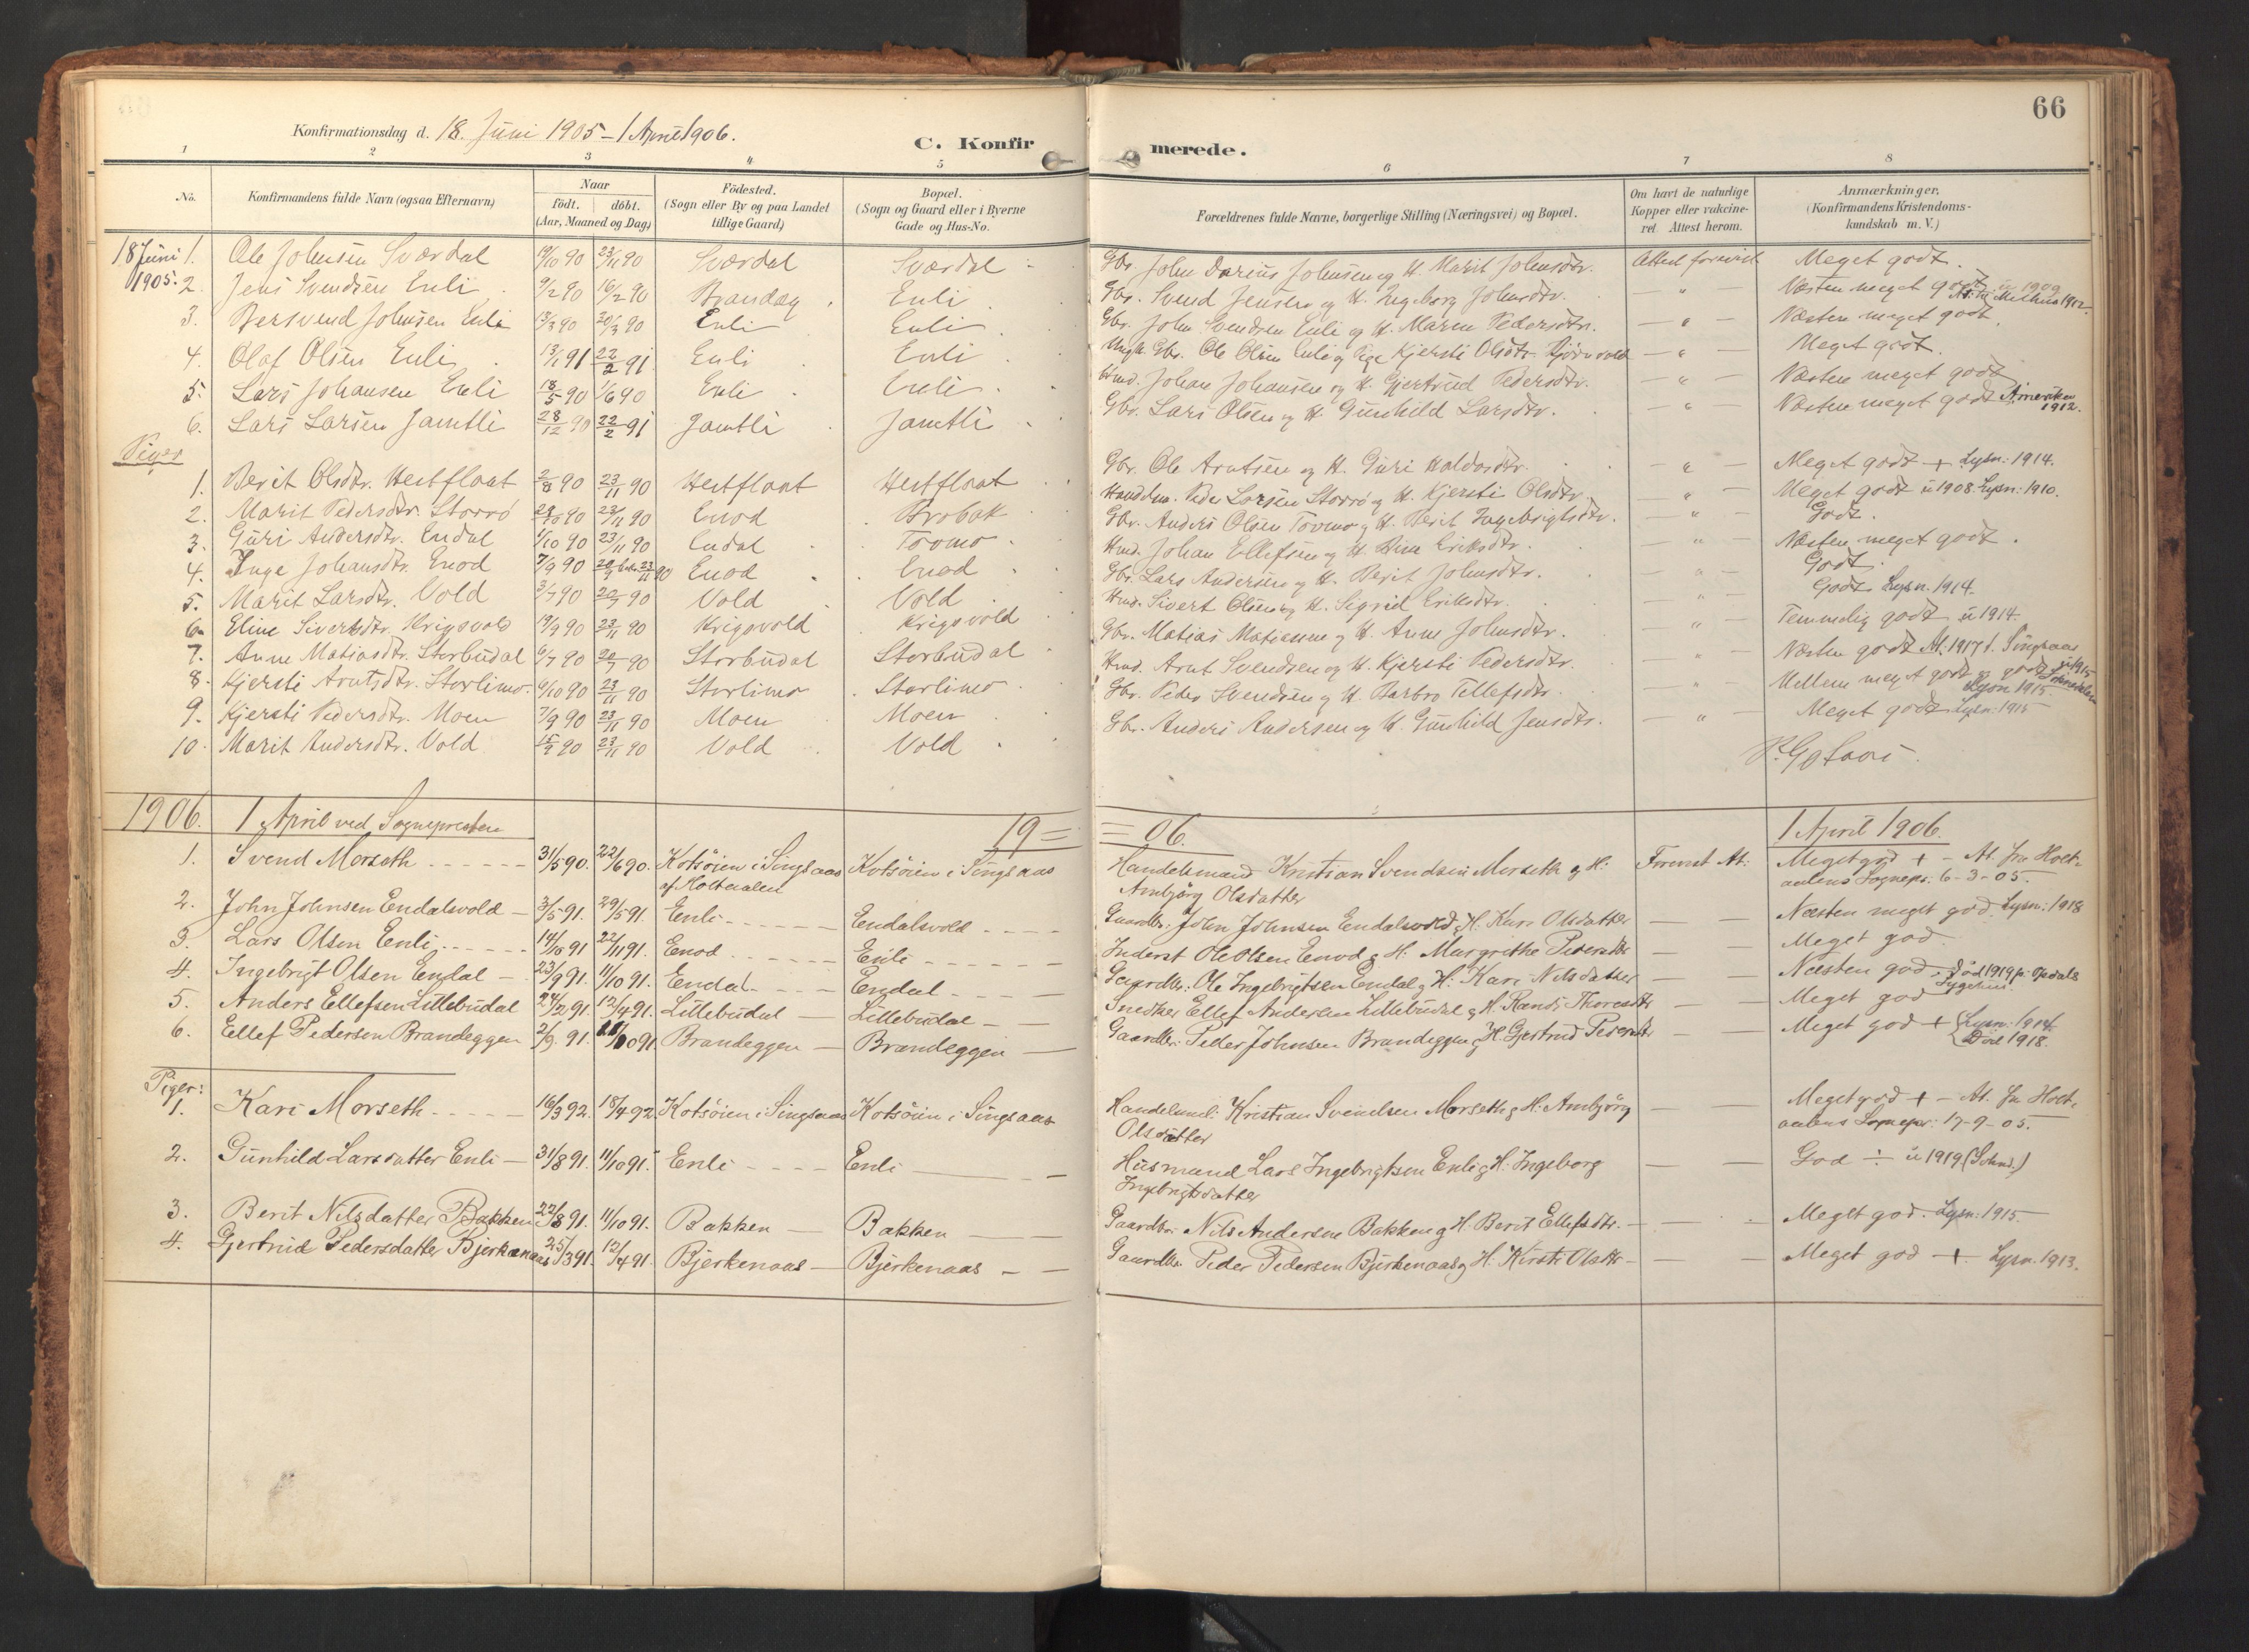 66
Konfirmationsdag d. 18. Juni 1905 – 1 April 1906.
C. Konfirmerede.
1 2 3 4 5 6 7 8
No. Konfirmandens fulde Navn (ogsaa Efternavn) Naar født. døbt. (Aar, Maaned og Dag) Födested. (Sogn eller By og paa Landet tillige Gaard) Bopæl. (Sogn og Gaard eller i Byerne Gade og Hus-No. Forældrenes fulde Navne, borgerlige Stilling (Næringsvei) og Bopæl. Om havt de naturlige Kopper eller vakcineret. Attest herom. Anmærkninger, (Konfirmandens Kristendomskundskab m. V.)
18 Juni 1905. 1. Ole Johnsen Sværdal 19/10 90 23/11 90 Sværdal Sværdal Gbr. John Darius Johnsen og H. Marit Johnsdtr. Attest forevist Meget godt.
2. Jens Svendsen Enli 9/2 90 16/2 90 Brandeg Enli Gbr. Svend Jensen og H. Ingeborg Johnsdtr. — " — Næsten meget godt. ü 1909 At. til Melhus 1912.
3. Bersvend Johnsen Enli 13/3 90 20/3 90 Enli Enli Gbr. John Svendsen Enli og H. Maren Pedersdtr. — " — Næsten meget godt.
4. Olaf Olsen Enli 13/1 91 22/2 91 Enli Enli Ungk. Gbr. Ole Olsen Enli og Pige Kjersti Olsdtr. — " — Meget godt.
5. Lars Johansen Enli 18/5 90 1/6 90 Enli Enli Hmd. Johan Johansen og H. Gjertrud Pedersdtr. — " — Næsten meget godt
6. Lars Larsen Jamtli 28/12 90 22/2 91 Jamtli Jamtli Gbr. Lars Olsen og H. Gunhild Larsdtr. — " — Næsten meget godt Amerika 1912.
Piger
1. Berit Olsdtr. Hestflaat 2/8 90 23/11 90 Hestflaat Hestflaat Gbr. Ole Arntsen og H. Guri Haldosdtr. — " — Meget godt + Lysn: 1914.
2. Marit Pedersdtr. Storrø 23/11 90 Enod Brobak Handelsm. Peder Larsen Storrø og H. Kjersti Olsdtr. — " — Meget godt ü 1908. Lysn: 1910.
3. Guri Andersdtr. Endal 1/10 90 23/11 90 Endal Tovmo Gbr. Anders Olsen Tovmo og H. Berit Ingebrigtsdtr. — " — Godt.
4. Inge Johansdtr. Enod 7/9 90 Enod Enod Hmd. Johan Ellefsen og H. Eriksdtr. — " — Næsten meget godt.
5. Marit Larsdtr. Vold 3/7 90 20/7 90 Vold Vold Gbr. Lars Andersen og H. Berit Johnsdtr. — " — Godt.
6. Eline Sivertsdtr. Krigsvold 19/9 90 23/11 90 Krigsvold Krigsvold Hmd. Sivert Olsen og H. Sigrid Eriksdtr. — " — Godt. Lysn. 1914.
7. Anne Matiasdtr. Storbudal 6/7 90 20/7 90 Storbudal Storbudal Gbr. Matias Matiassen og H. Anne Johnsdtr. — " — Temmelig godt ü 1914.
8. Kjersti Arntsdtr. Storlimo 6/10 90 23/11 90 Storlimo Storlimo Hmd. Arnt Svendsen og H. Kjersti Pedersdtr. — " — Næsten godt At. 1917 t. Singsaas
9. Kjersti Pedersdtr. Moen 7/9 90 23/11 90 Moen Moen Gbr. Peder Svendsen og H. Barbro Tellefsdtr. — " — Mellem meget godt og godt Lysn 1915
10. Marit Andersdtr. Vold 15/9 90 23/11 90 Vold Vold Gbr. Anders Andersen og H. Gunhild Jensdtr. — " — Meget godt Lysn: 1915
1906. 1 April ved Sognepresten 19 = = 06. 1 April 1906.
1. Svend Morseth 31/5 90. 22/6 90. Kotsöien i Singsaas af Holtaalen Kotsöien i Singsaas Handelsmand Kristian Svendsen Morseth og H: Ambjörg Olsdatter Forevist At: Meget god + – At. fra Holtaalens Sognepr: 6-3-05.
2. John Johnsen Endalsvold 3/5 91. 29/5 91. Enli Endalsvold Gaardbr: John Johnsen Endalsvold, H. Kari Olsdatter — — Næsten meget god. Lysn: 1918
3. Lars Olsen Enli 14/10 91 22/11 91. Enod Enli Inderst Ole Olsen Enod og H: Margrethe Pedersdtr — — Meget god.
4. Ingebrigt Olsen Endal 23/9 91. 11/10 91. Endal Endal Gaardbr: Ole Ingebrigtsen Endal og H: Kari Nilsdatter — — Næsten god. Död 1919 p. Opdals Sygehus.
5. Anders Ellefsen Lillebudal 24/2 91. 12/4 91. Lillebudal Lillebudal Snedker Ellef Andersen Lillebudal og H. Randi Thoresdtr — — Meget god
6. Ellef Pedersen Brandeggen 2/9 91. 11/10 91 Brandeggen Brandeggen Gaardbr: Peder Johnsen Brandeggen og H. Gjertrud Pedersdtr — — Meget god + Lysn: 1914. Död 1918.
Piger:
1. Kari Morseth 16/3 92. 18/4 92 Kotsöien i Singsaas Kotsöien i Singsaas Handelsmd: Kristian Svendsen Morseth og H: Ambjörg Olsdatter — — Meget god + – At. fra Holtaalens Sognepr: 17-9-05.
2. Gunhild Larsdatter Enli 31/8 91. 11/10 91. Enli Enli Husmand Lars Ingebrigtsen Enli og H: Ingeborg Ingebrigtsdatter — — God ÷ ü 1919 (Sokned.)
3. Berit Nilsdatter Bakken 22/8 91. 11/10 91. Bakken Bakken Gaardbr: Nils Andersen Bakken og H. Berit Ellefsdtr. — — Meget god. Lysn: 1915.
4. Gjertrud Pedersdatter Bjerkenaas 25/3 91. 12/4 91. Bjerkenaas Bjerkenaas Gaardbr: Peder Pedersen Bjerkenaas og H. Kirsti Olsdtr — — Meget god + Lysn. 1913.